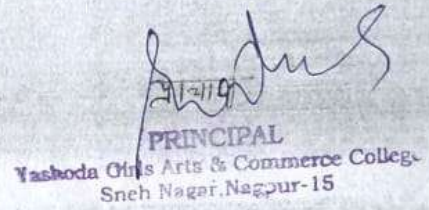 PRINCIPAL
Yashoda Girls Arts & Commerce College
Sneh Nagar, Nagpur-15